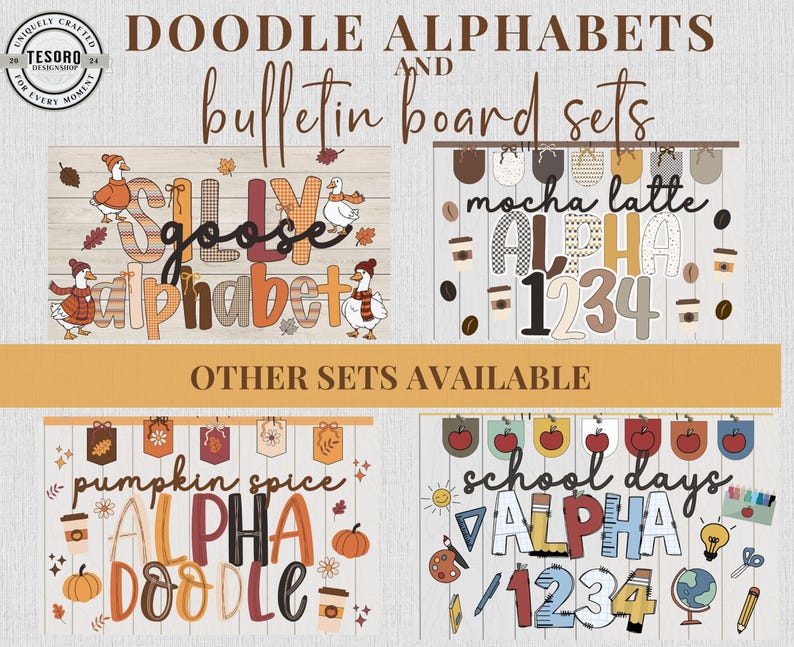 UNIQUELY CRAFTED
20 TESORO 24
DESIGNSHOP
FOR EVERY MOMENT
DOODLE ALPHABETS
AND
bulletin board sets
SILLY
goose
alphabet
mocha latte
ALPHA
1234
OTHER SETS AVAILABLE
pumpkin spice
ALPHA
DOODLE
school days
ALPHA
1234